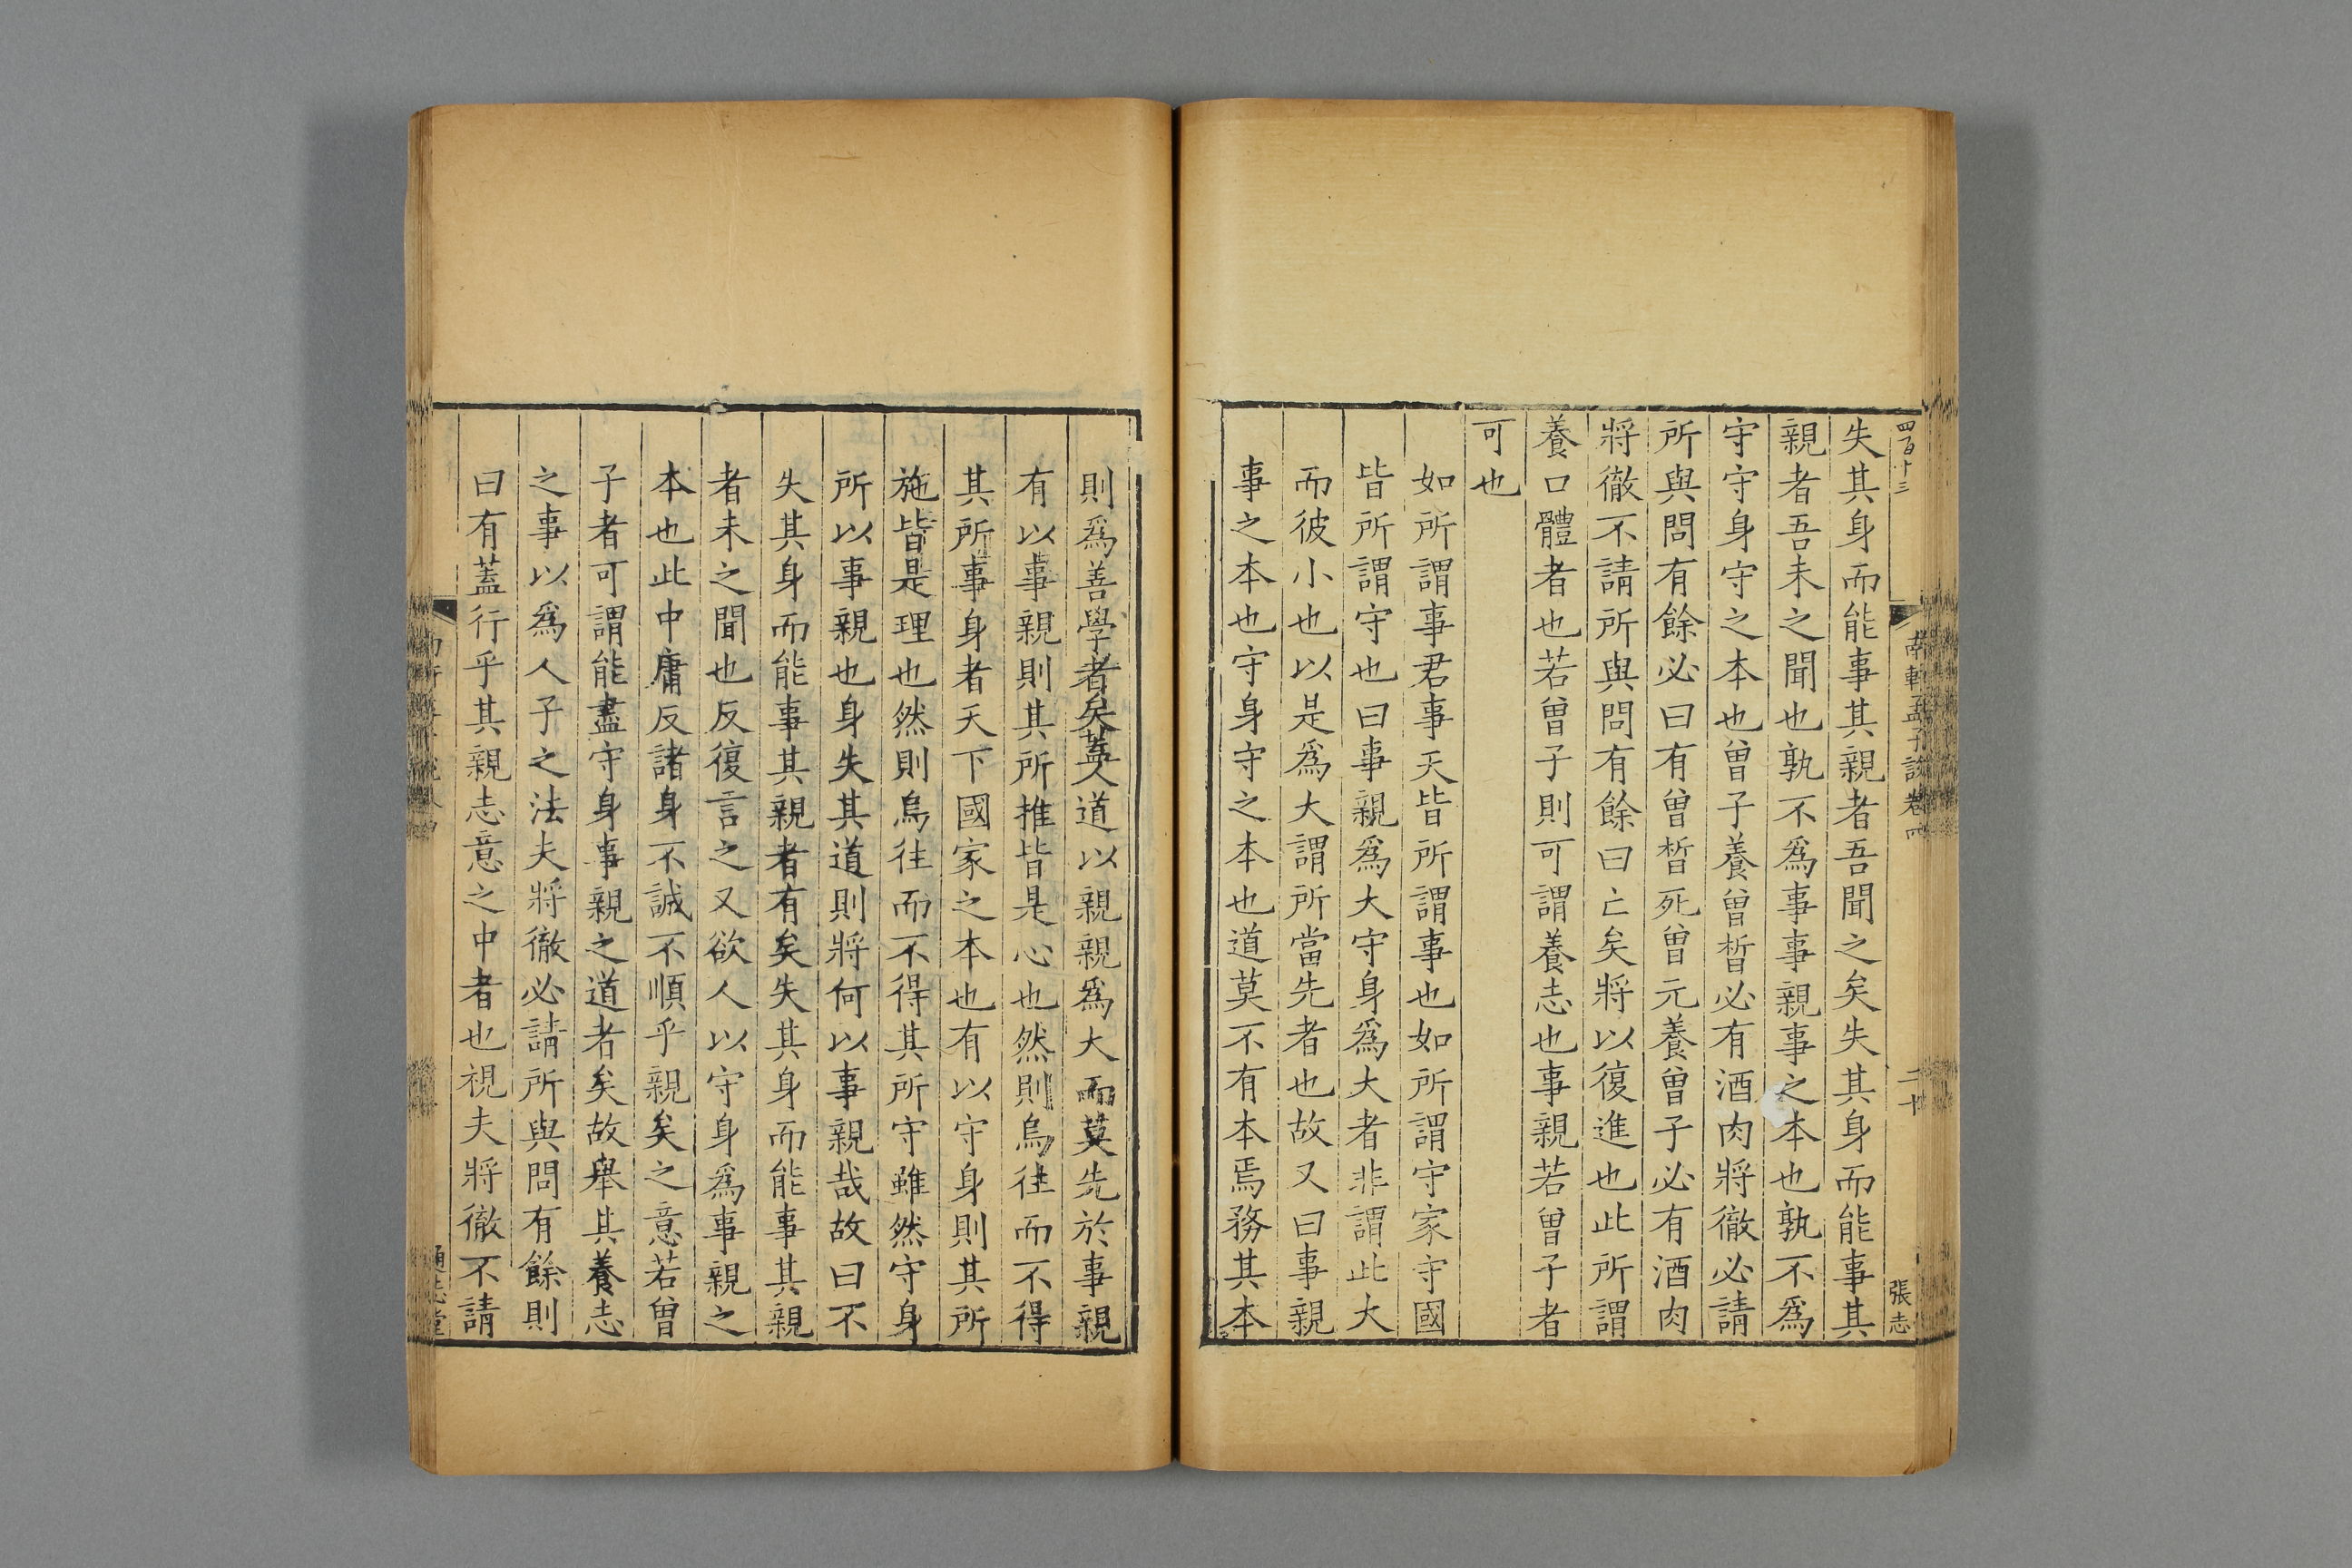 四百十三
南軒孟子說卷四
二十
張志
失其身而能事其親者吾聞之矣失其身而能事其
親者吾未之聞也孰不爲事事親事之本也孰不爲
守守身守之本也曾子養曾晳必有酒肉將徹必請
所與問有餘必曰有曾晳死曾元養曾子必有酒肉
將徹不請所與問有餘曰亡矣將以復進也此所謂
養口體者也若曾子則可謂養志也事親若曾子者
可也
如所謂事君事天皆所謂事也如所謂守家守國
皆所謂守也曰事親爲大守身爲大者非謂此大
而彼小也以是爲大謂所當先者也故又曰事親
事之本也守身守之本也道莫不有本焉務其本
則爲善學者矣蓋人道以親親爲大而莫先於事親
有以事親則其所推皆是心也然則烏往而不得
其所事身者天下國家之本也有以守身則其所
施皆是理也然則烏往而不得其所守雖然守身
所以事親也身失其道則將何以事親哉故曰不
失其身而能事其親者有矣失其身而能事其親
者未之聞也反復言之又欲人以守身爲事親之
本也此中庸反諸身不誠不順乎親矣之意若曾
子者可謂能盡守身事親之道者矣故舉其養志
之事以爲人子之法夫將徹必請所與問有餘則
曰有蓋行乎其親志意之中者也視夫將徹不請
通志堂